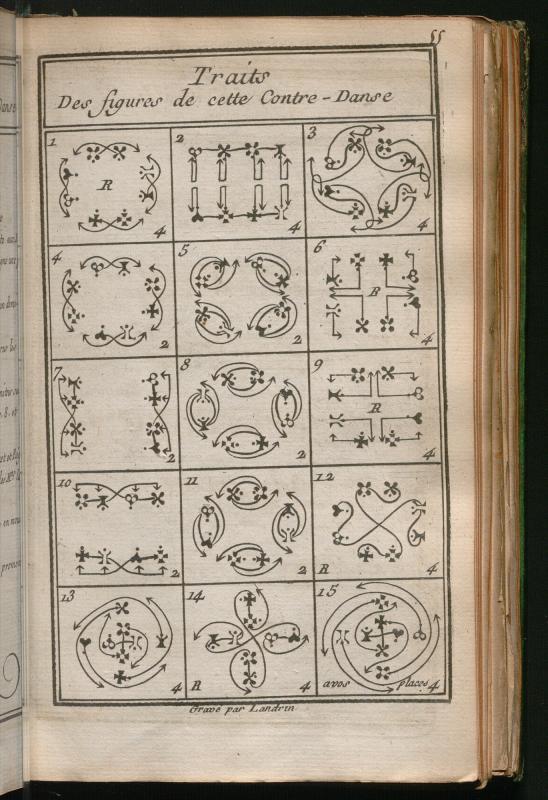 55
Traits
Des figures de cette Contre-Danse
1
R
4
2
4
3
4
4
2
5
2
6
R
4
7
2
8
2
9
R
4
10
2
11
2
12
R
4
13
4
14
R
4
15
avos places 4
Gravé par Landrin